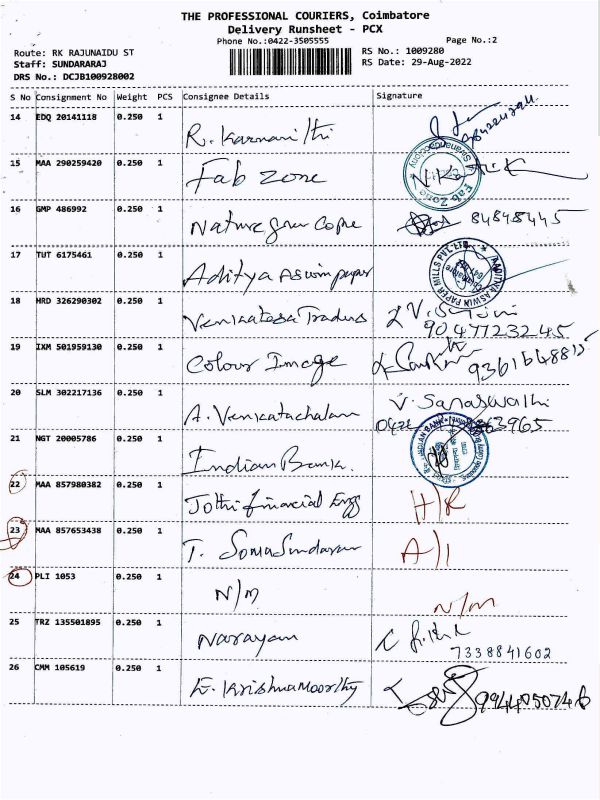 THE PROFESSIONAL COURIERS, Coimbatore
Delivery Runsheet - PCX
Phone No.:0422-3505555
Page No.:2
Route: RK RAJUNAIDU ST
RS No.: 1009280
Staff: SUNDARARAJ
RS Date: 29-Aug-2022
DRS No.: DCJB100928002
S No Consignment No Weight PCS Consignee Details Signature
14 EDQ 20141118 0.250 1
15 MAA 290259420 0.250 1 Fab Zone
Fab Zone
16 GMP 486992 0.250 1 Nature
17 TUT 6175461 0.250 1 Aditya Aswin paper
AADITHYA ASWIN PAPER MILLS PVT. LTD.
18 HRD 326290302 0.250 1 Venkatesa Traders
9047723245
19 IXM 501959130 0.250 1 Colour Image
20 SLM 302217136 0.250 1 A. Venkatachalam V. Saraswathi
21 NGT 20005786 0.250 1 Indian Bank.
INDIAN BANK
22 MAA 857980382 0.250 1 Jothi financial Engg H/R
23 MAA 857653438 0.250 1 T. Somasundaram A/1
24 PLI 1053 0.250 1 N/m N/m
25 TRZ 135501895 0.250 1 Narayan
7338841602
26 CMM 105619 0.250 1 E. Krishnamoorthy 9944050746